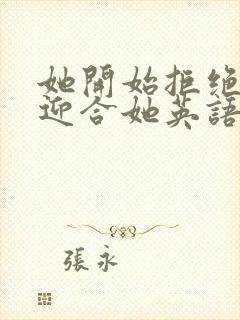 她開始拒絕
迎合她英語
張永